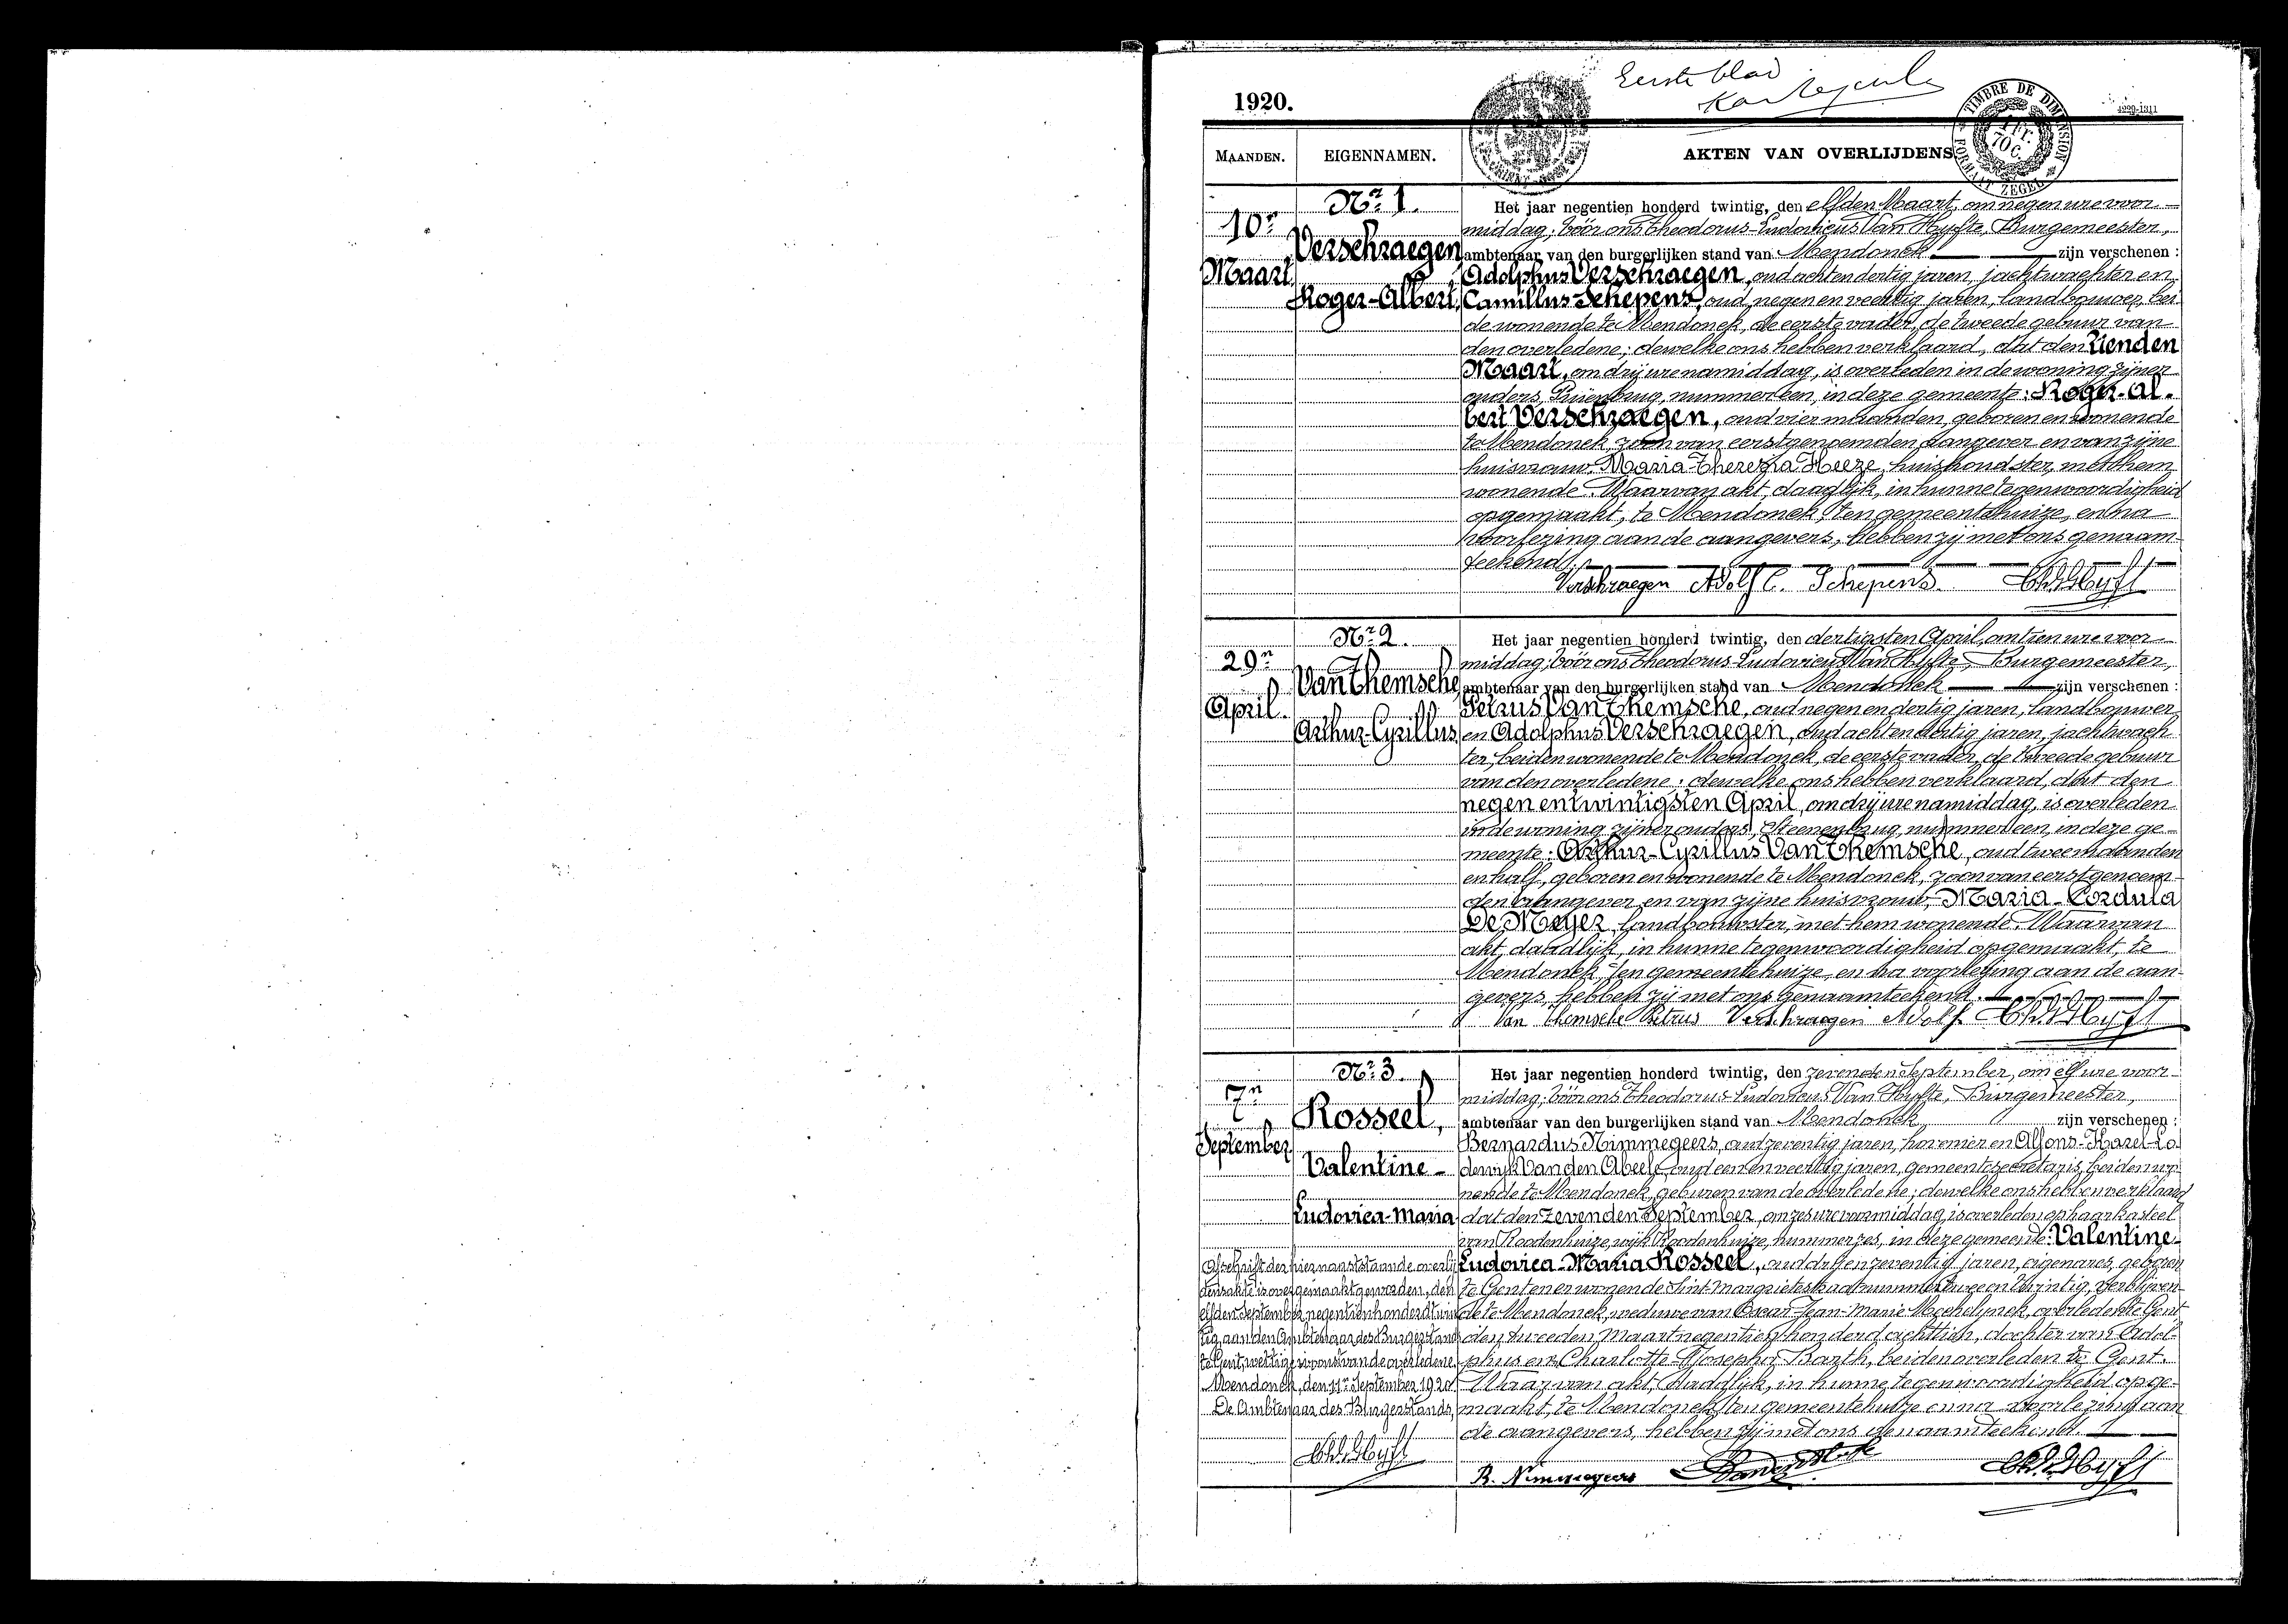 Eerste blad
1920.
4229-1311
TIMBRE DE DIMENSION
1 Fr.
70 C.
FORMAAT ZEGEL
MAANDEN.
EIGENNAMEN.
AKTEN VAN OVERLIJDENS
10n
Maart
Nr 1.
Verschraegen,
Roger-Albert.
Het jaar negentien honderd twintig, den elfden Maart, om negen ure voor-
middag; vóór ons Theodorus-Ludovicus Van Hyfte, Burgemeester,
ambtenaar van den burgerlijken stand van Mendonck zijn verschenen :
Adolphus Verschraegen, oud achtendertig jaren, jachtwachter en
Camillus Schepens, oud negen en veertig jaren, landbouwer, bei-
de wonende te Mendonck, de eerste vader, de tweede gebuur van
den overledene; dewelke ons hebben verklaard, dat den tienden
Maart, om drij ure namiddag, is overleden in de woning zijner
ouders, nummer een, in deze gemeente: Roger-Al-
bert Verschraegen, oud vier maanden, geboren en wonende
te Mendonck, zoon van eerstgenoemden aangever en van zijne
huisvrouw Maria-Theresia Heeze, huishoudster, met hem
wonende. Waarvan akt, daadlijk, in hunne tegenwoordigheid
opgemaakt, te Mendonck, ten gemeentehuize, en na
voorlezing aan de aangevers, hebben zij met ons genaam-
teekend.
Verschraegen Adolf C. Schepens.
29n
April.
Nr 2.
Van Themsche,
Arthur-Cyrillus.
Het jaar negentien honderd twintig, den dertigsten April, om tien ure voor-
middag; vóór ons Theodorus-Ludovicus Van Hyfte, Burgemeester,
ambtenaar van den burgerlijken stand van Mendonck zijn verschenen :
Petrus Van Themsche, oud negen en dertig jaren, landbouwer
en Adolphus Verschraegen, oud achtendertig jaren, jachtwach-
ter, beiden wonende te Mendonck, de eerste vader, de tweede gebuur
van den overledene; dewelke ons hebben verklaard, dat den
negen en twintigsten April, om drij ure namiddag, is overleden
in de woning zijner ouders, Steenenbrug, nummer een, in deze ge-
meente: Arthur-Cyrillus Van Themsche, oud twee maanden
en half, geboren en wonende te Mendonck, zoon van eerstgenoem-
den aangever en van zijne huisvrouw, Maria-Cordula
De Meyer, landbouwster, met hem wonende. Waarvan
akt, daadlijk, in hunne tegenwoordigheid opgemaakt, te
Mendonck, ten gemeentehuize, en na voorlezing aan de aan-
gevers, hebben zij met ons genaamteekend.
Van Themsche Petrus Verschraegen Adolf.
7n
September
Nr 3.
Rosseel,
Valentine-
Ludovica-Maria
Het jaar negentien honderd twintig, den zevenden September, om elf ure voor-
middag; vóór ons Theodorus-Ludovicus Van Hyfte, Burgemeester,
ambtenaar van den burgerlijken stand van Mendonck, zijn verschenen :
Bernardus Nimmegeers, oud zeventig jaren, hovenier en Alfons-Karel-Lo-
dewyk Van den Abeele, oud een en veertig jaren, gemeentesecretaris, beiden wo-
nende te Mendonck, geburen van de overledene; dewelke ons hebben verklaard,
dat den zevenden September, om zes ure voormiddag, is overleden op haar kasteel
van Roodenhuize, wijk Roodenhuize, nummer zes, in deze gemeente: Valentine-
Ludovica-Maria Rosseel, oud drij en zeventig jaren, eigenares, geboren
te Gent en er wonende Sint Margrietestraat nummer twee en twintig, verblijven-
de te Mendonck, weduwe van Oscar-Jean-Marie Mechelynck, overleden te Gent
den tweeden Maart negentien honderd achttien, dochter van Adol-
phus en Charlotte-Josepha Barth, beiden overleden te Gent.
Waarvan akt, daadlijk, in hunne tegenwoordigheid opge-
maakt, te Mendonck, ten gemeentehuize en na voorlezing aan
de aangevers, hebben zij met ons genaamteekend.
Afschrift der hiernaaststaande overlij-
densakte is overgemaakt geworden, den
elfden September negentienhonderd twin-
tig, aan den Ambtenaar des Burgerstands
te Gent, wettige woonst van de overledene.
Mendonck, den 11n September 1920
De Ambtenaar des Burgerstands,
B. Nimmegeers